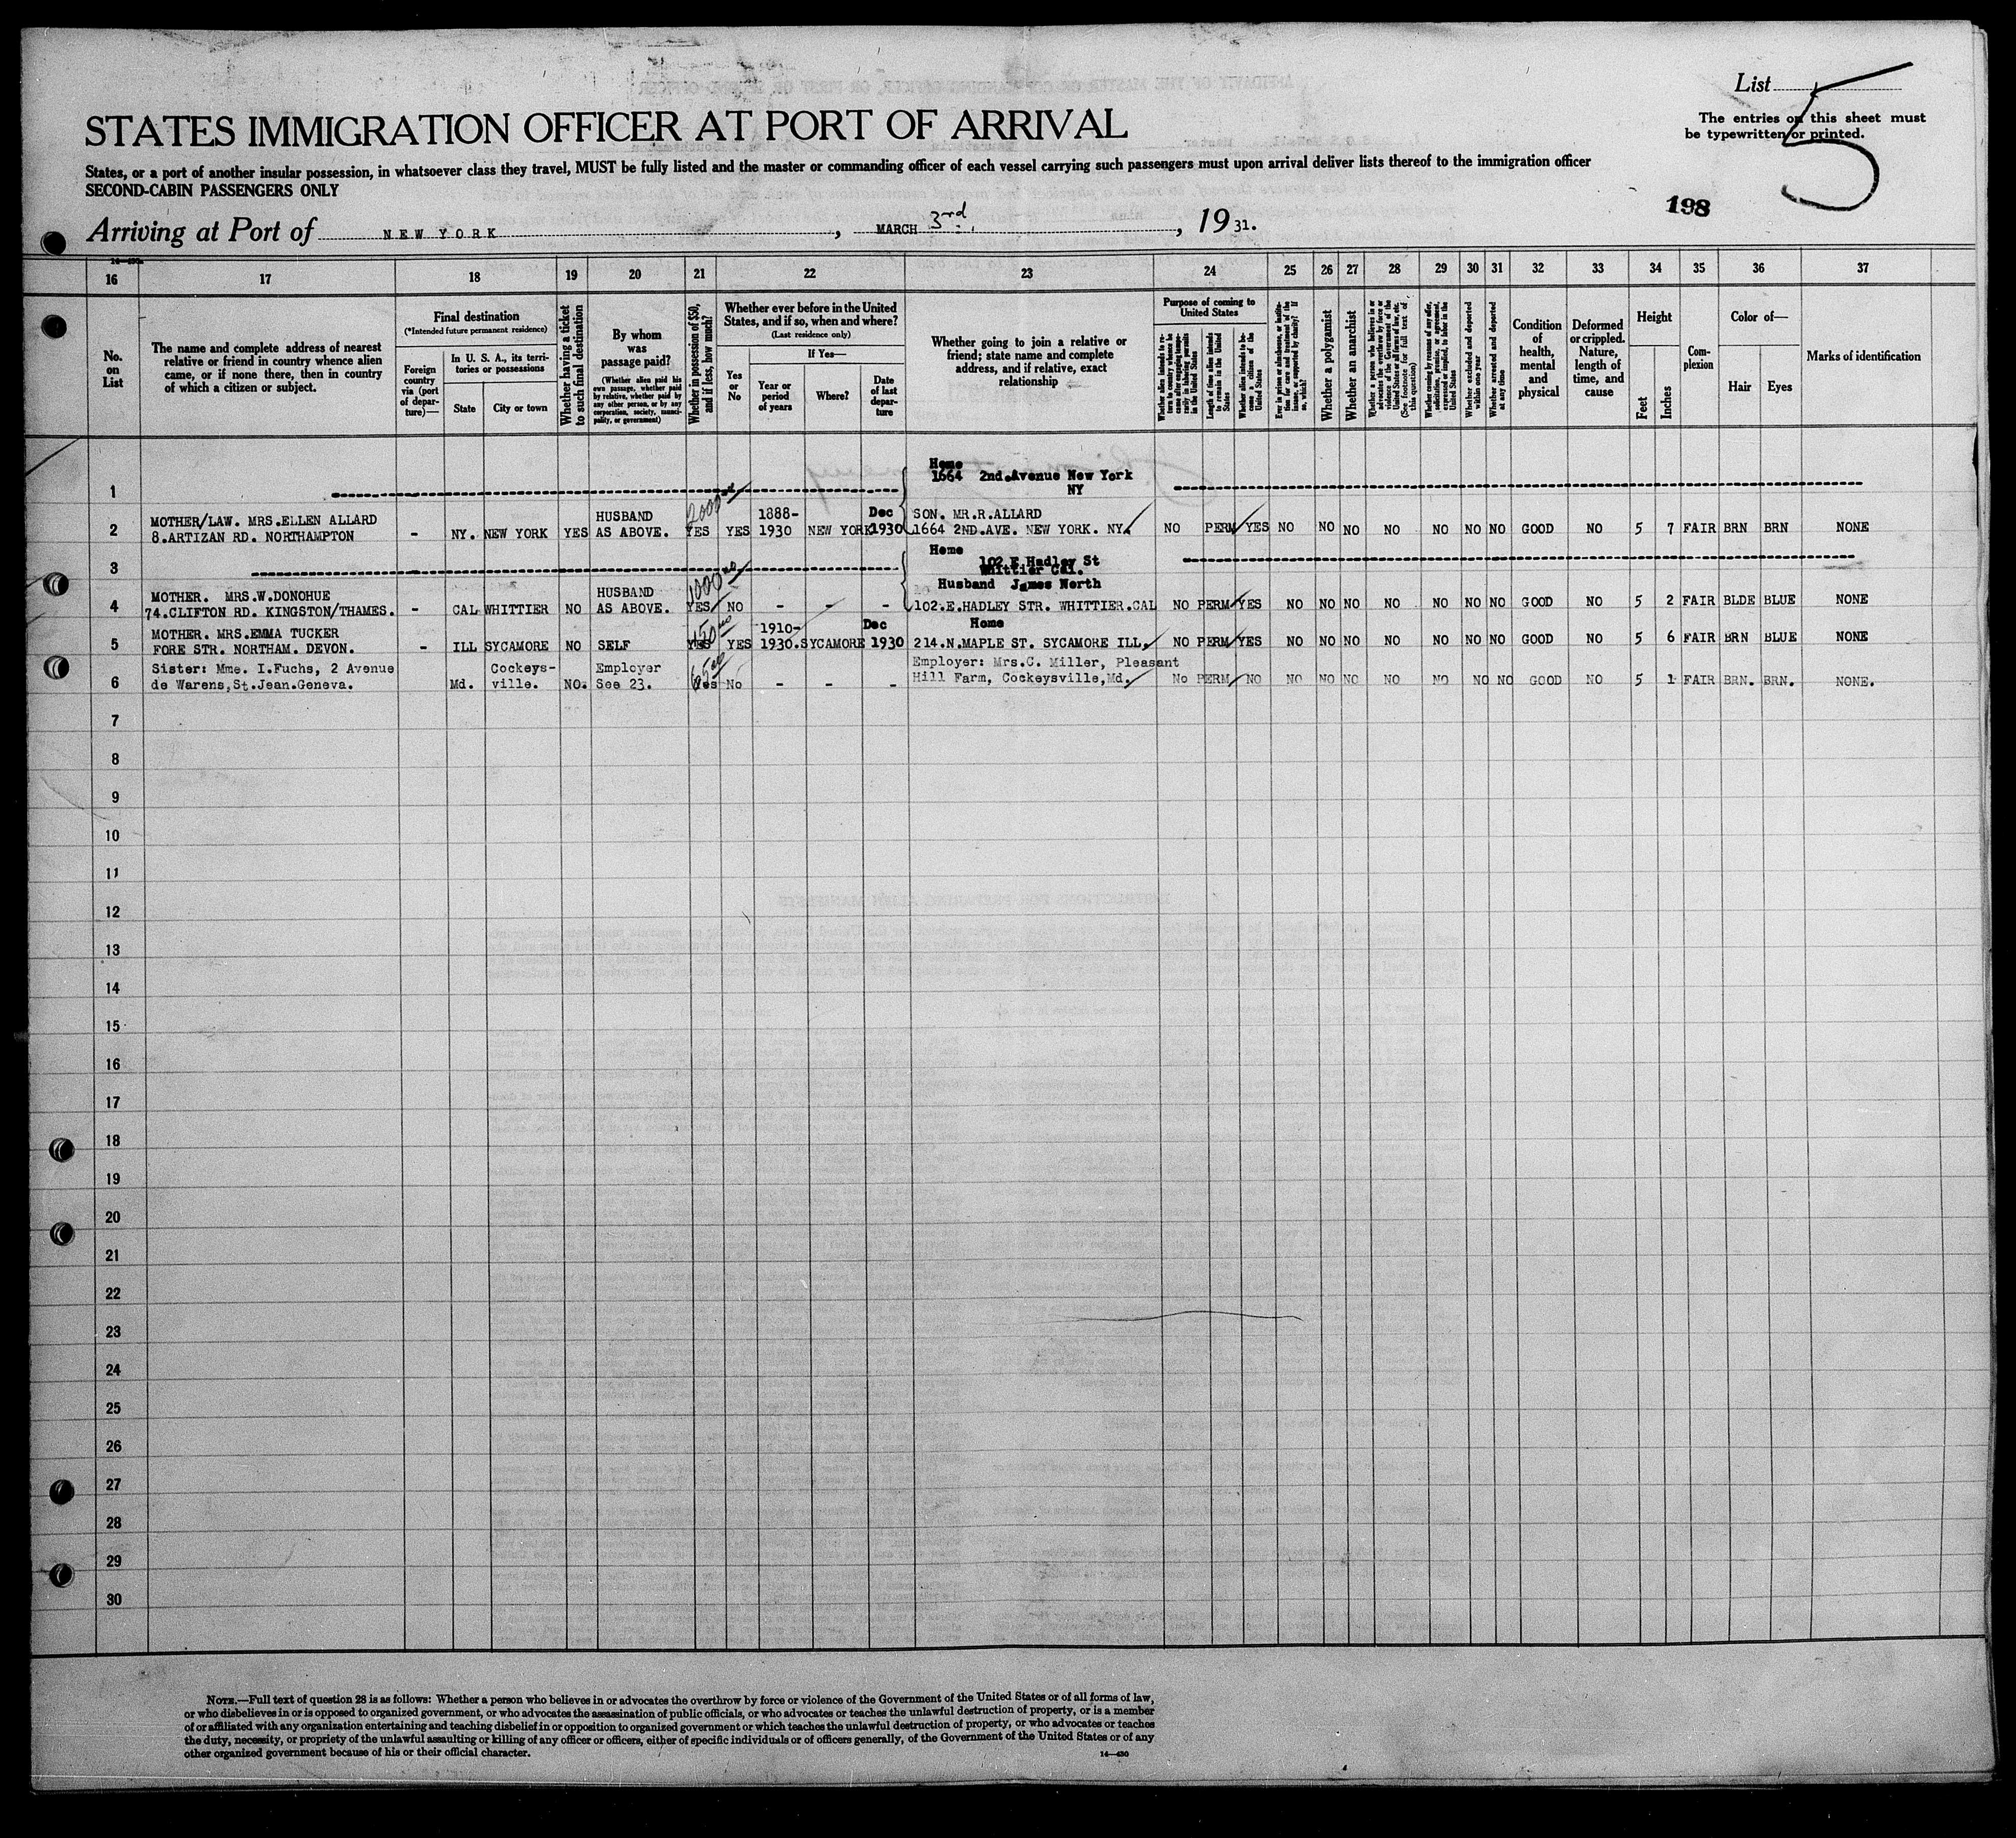 List 5
The entries on this sheet must
be typewritten or printed.
STATES IMMIGRATION OFFICER AT PORT OF ARRIVAL
States, or a port of another insular possession, in whatsoever class they travel, MUST be fully listed and the master or commanding officer of each vessel carrying such passengers must upon arrival deliver lists thereof to the immigration officer
SECOND-CABIN PASSENGERS ONLY
198
Arriving at Port of NEW YORK, MARCH 3rd., 1931.
16 17 18 19 20 21 22 23 24 25 26 27 28 29 30 31 32 33 34 35 36 37
No.
on
List
The name and complete address of nearest
relative or friend in country whence alien
came, or if none there, then in country
of which a citizen or subject.
Final destination
(*Intended future permanent residence)
Foreign
country
via (port
of depar-
ture)—
In U. S. A., its terri-
tories or possessions
State
City or town
Whether having a ticket
to such final destination
By whom
was
passage paid?
(Whether alien paid his
own passage, whether paid
by relative, whether paid by
any other person, or by any
corporation, society, munici-
pality, or government)
Whether in possession of $50,
and if less, how much?
Whether ever before in the United
States, and if so, when and where?
(Last residence only)
Yes
or
No
If Yes—
Year or
period
of years
Where?
Date
of last
depar-
ture
Whether going to join a relative or
friend; state name and complete
address, and if relative, exact
relationship
Purpose of coming to
United States
Length of time alien intends
to remain in the United
States
Whether alien intends to be-
come a citizen of the
United States
Whether a polygamist
Whether an anarchist
Whether excluded and deported
within one year
Whether arrested and deported
at any time
Condition
of
health,
mental
and
physical
Deformed
or crippled.
Nature,
length of
time, and
cause
Height
Feet
Inches
Com-
plexion
Color of—
Hair
Eyes
Marks of identification
1
Home
1664 2nd.Avenue New York
NY
2
MOTHER/LAW. MRS.ELLEN ALLARD
8.ARTIZAN RD. NORTHAMPTON
- NY. NEW YORK YES
HUSBAND
AS ABOVE.
2000
YES YES
1888-
1930
NEW YORK
Dec
1930
SON. MR.R.ALLARD
1664 2ND.AVE. NEW YORK. NY.
NO PERM YES NO NO NO NO NO NO NO GOOD NO 5 7 FAIR BRN BRN NONE
3
Home
102 E Hadley St
Whittier Cal.
Husband James North
4
MOTHER. MRS.W.DONOHUE
74.CLIFTON RD. KINGSTON/THAMES.
- CAL WHITTIER NO
HUSBAND
AS ABOVE.
1000
YES NO - - -
102.E.HADLEY STR. WHITTIER.CAL
NO PERM YES NO NO NO NO NO NO NO GOOD NO 5 2 FAIR BLDE BLUE NONE
5
MOTHER. MRS.EMMA TUCKER
FORE STR. NORTHAM. DEVON.
- ILL SYCAMORE NO SELF
150
YES YES
1910-
1930.
SYCAMORE
Dec
1930
Home
214.N.MAPLE ST. SYCAMORE ILL.
NO PERM YES NO NO NO NO NO NO NO GOOD NO 5 6 FAIR BRN BLUE NONE
6
Sister: Mme. I.Fuchs, 2 Avenue
de Warens,St.Jean.Geneva.
Md.
Cockeys-
ville.
NO.
Employer
See 23.
65
Yes No - - -
Employer: Mrs.C. Miller, Pleasant
Hill Farm, Cockeysville,Md.
No PERM NO NO NO NO NO NO NO NO GOOD NO 5 1 FAIR BRN. BRN. NONE.
7
8
9
10
11
12
13
14
15
16
17
18
19
20
21
22
23
24
25
26
27
28
29
30
NOTE.—Full text of question 28 is as follows: Whether a person who believes in or advocates the overthrow by force or violence of the Government of the United States or of all forms of law,
or who disbelieves in or is opposed to organized government, or who advocates the assassination of public officials, or who advocates or teaches the unlawful destruction of property, or is a member
of or affiliated with any organization entertaining and teaching disbelief in or opposition to organized government or which teaches the unlawful destruction of property, or who advocates or teaches
the duty, necessity, or propriety of the unlawful assaulting or killing of any officer or officers, either of specific individuals or of officers generally, of the Government of the United States or of any
other organized government because of his or their official character.
14—430